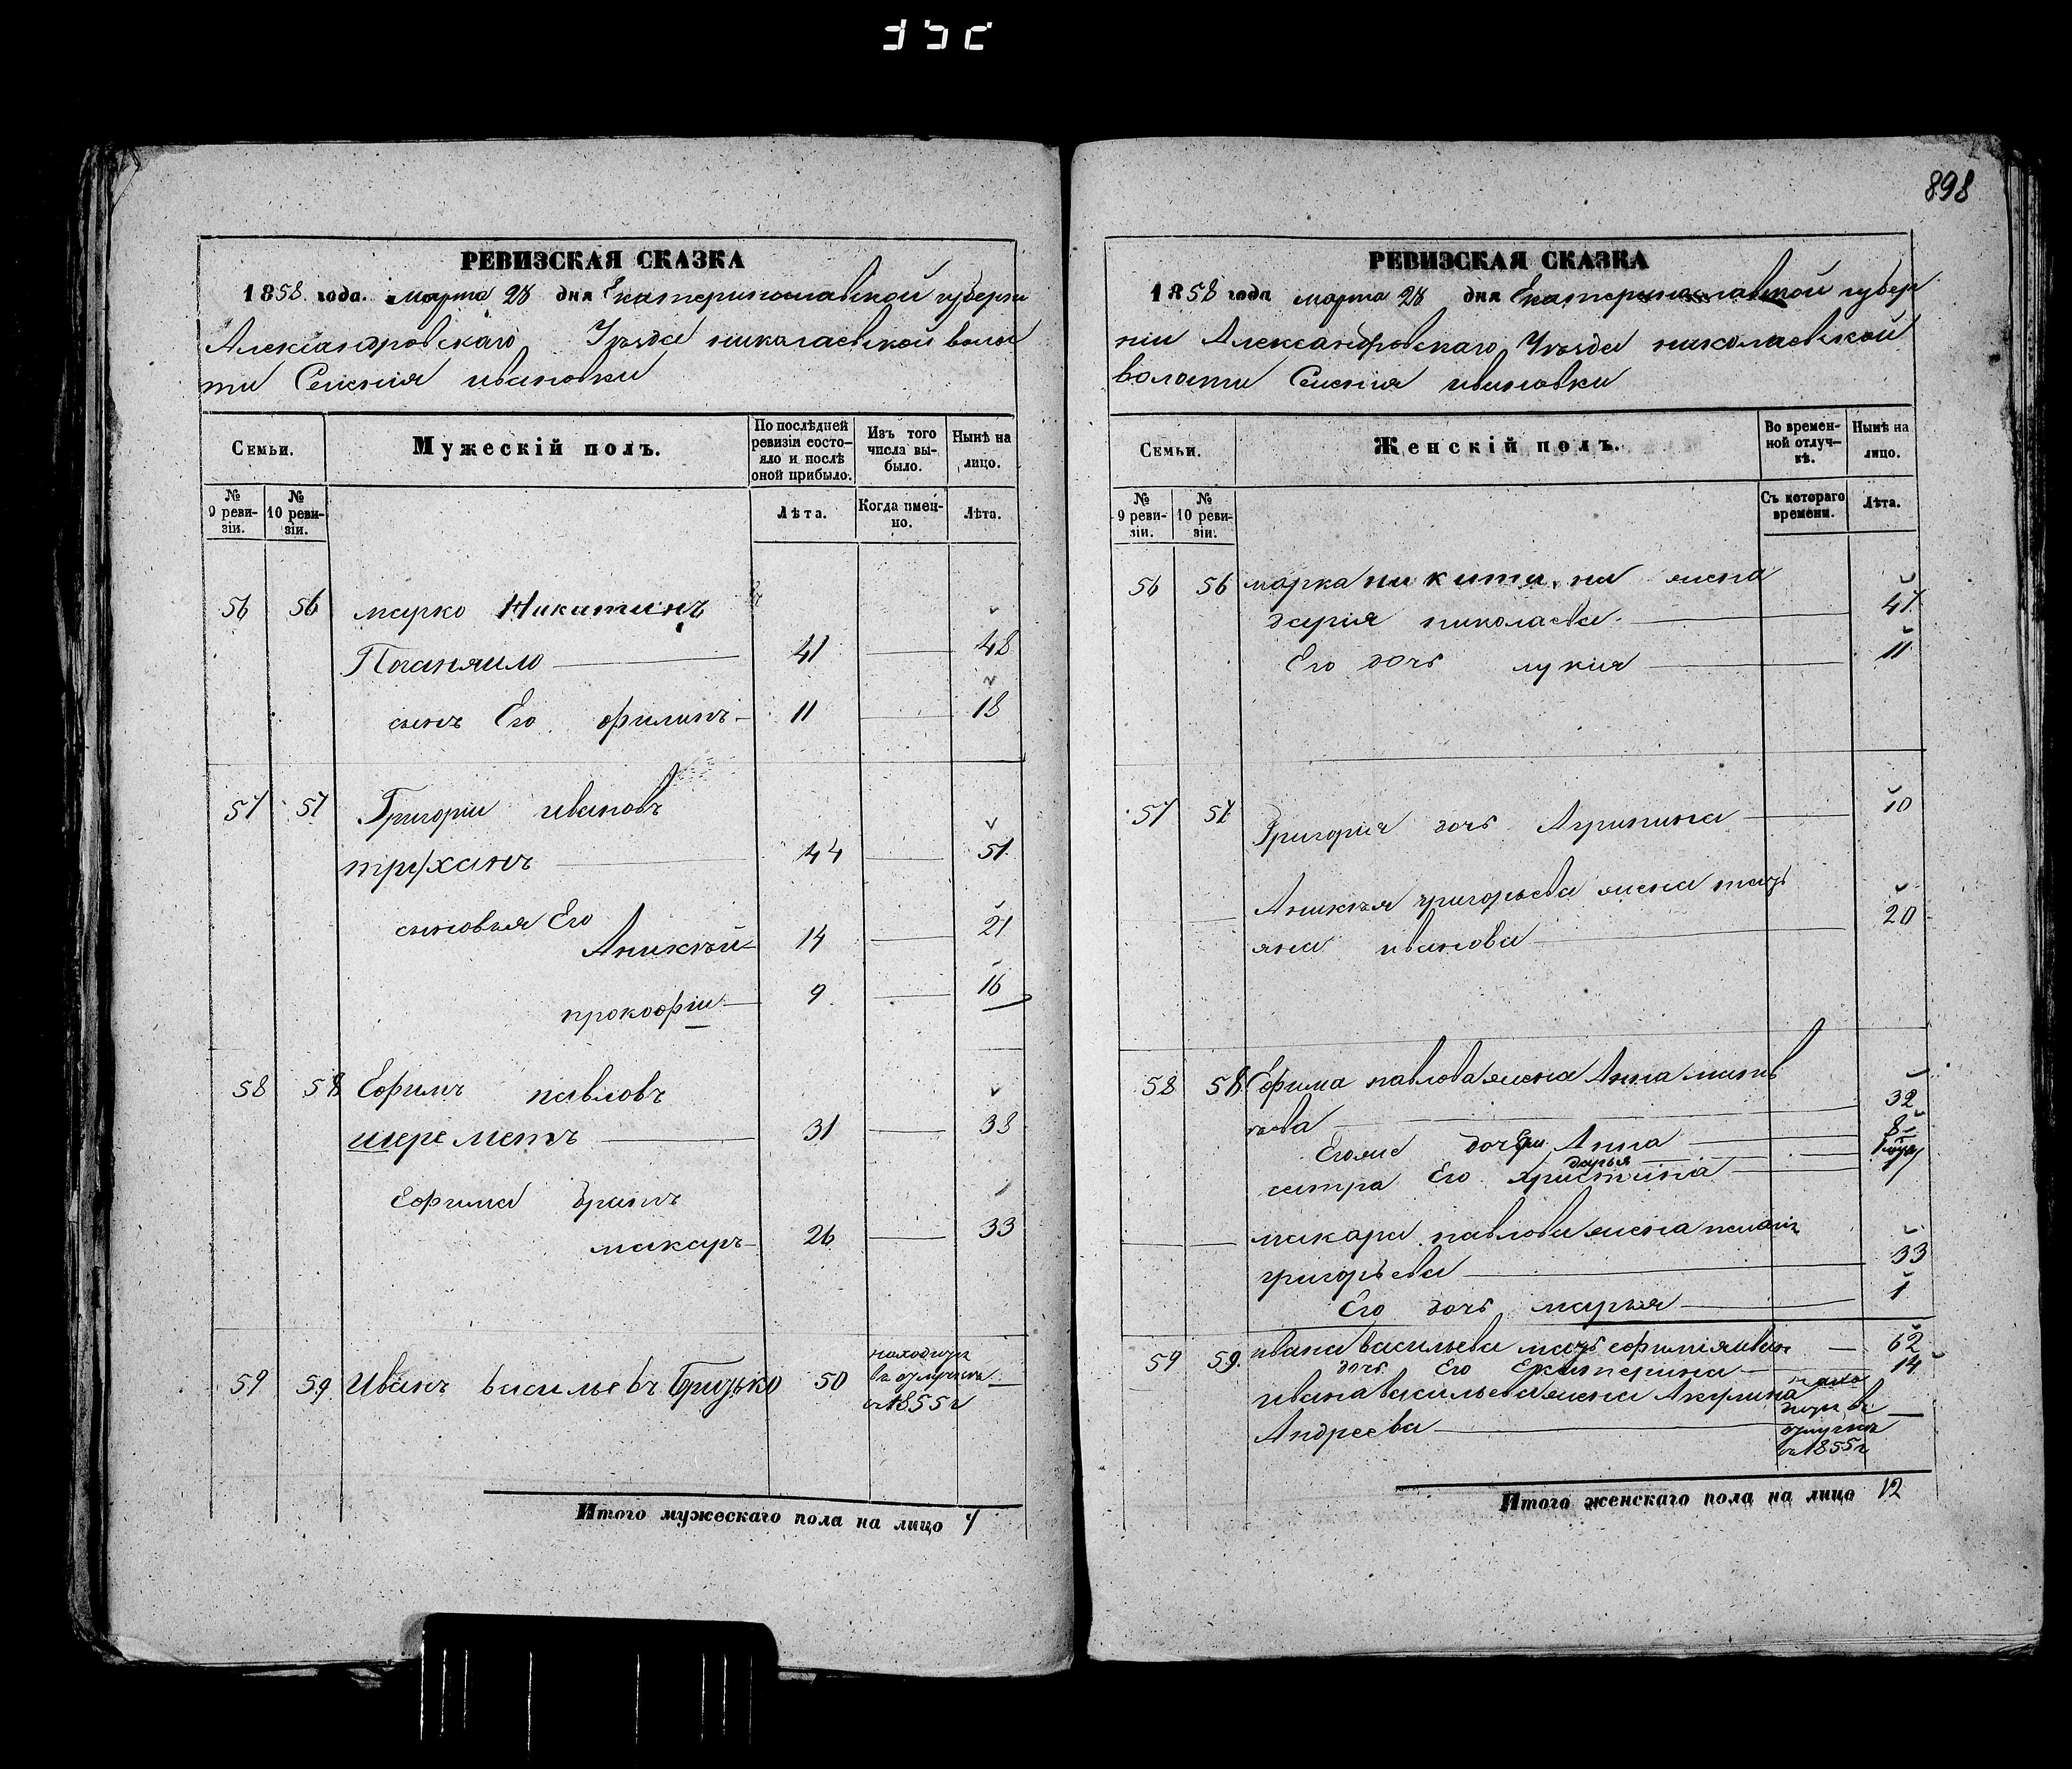 898
РЕВИЗСКАЯ СКАЗКА
1858 года. марта 28 дня Екатеринославской губерни
Александровскаго Уезда николаевской волос
ти Селения ивановки
Семьи.
Мужескій полъ.
По послѣдней ревизіи состо-
яло и послѣ
оной прибыло.
Изъ того
числа вы-
было.
Нынѣ на
лицо.
№
9 реви-
зіи.
№
10 реви-
зіи.
Лѣта.
Когда имен-
но.
Лѣта.
56 56 марко Никитинъ
41 48
сынъ Его филипъ 11 18
57 57 Григории ивановъ
труханъ 44 51
сыновья Его
Аникѣй 14 21
прокофіи 9 16
58 58 Ефимъ павловъ
шереметъ 31 38
Ефима братъ
макаръ 26 33
59 59 Иванъ васильевъ Бризько 50
находится
въ отлучкѣ
съ 1855 г
Итого мужескаго пола на лицо 7
РЕВИЗСКАЯ СКАЗКА
1858 года марта 28 дня Екатеринославской губер
ніи Александровскаго Уезда николаевской
волости Селения ивановки
Семьи.
Женскій полъ.
Во времен-
ной отлуч-
кѣ.
Нынѣ на
лицо.
№
9 реви-
зіи.
№
10 реви-
зіи.
Съ котораго
времени.
Лѣта.
56 56 марка никитина жена
дария николаева 47
Его дочь лукия 11
57 57 Григория дочь Агрипина 10
Аникѣя григорьева жена тать
яна иванова 20
58 58 Ефима павлова жена Анна матв
ѣева 32
Егоже дочери Анна 8
дарья 1
сестра Его христина
макара павлова жена пелагія
григорьева 33
Его дочь марья 1
59 59. ивана васильева мать ефимия иван 62
дочь Его Екатерина 14
ивана васильева жена Акулина
Андреева
нахо
дится въ
отлучкѣ
съ 1855 г
Итого женскаго пола на лицо 12